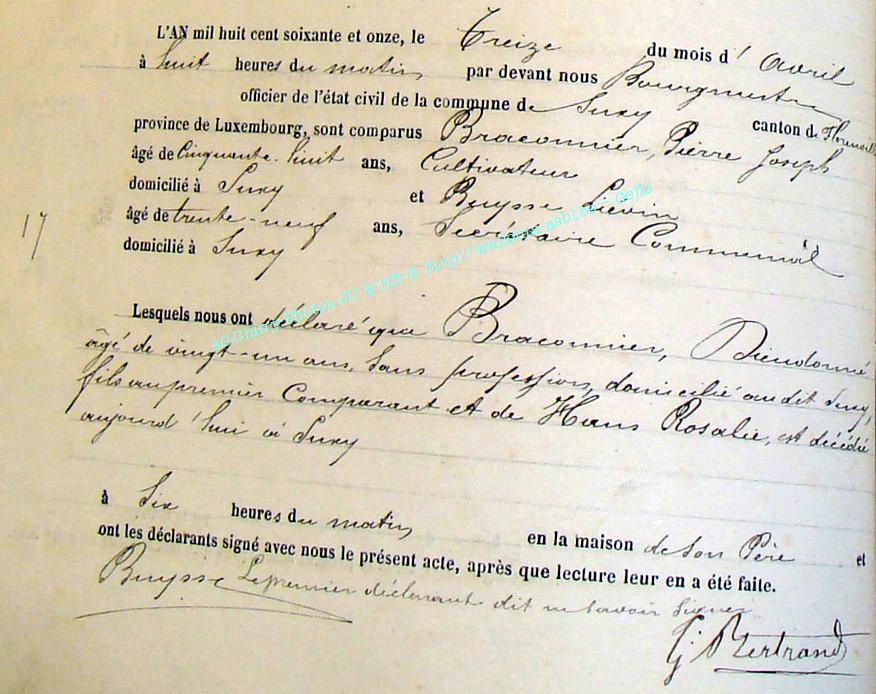 L'AN mil huit cent soixante et onze, le Treize du mois d'Avril
à huit heures du matin par devant nous Bourgmestre
officier de l'état civil de la commune de Suxy canton de Florenville
province de Luxembourg, sont comparus Braconnier, Pierre Joseph
âgé de Cinquante-huit ans, Cultivateur
domicilié à Suxy et Buysse Liévin
âgé de trente-neuf ans, Secrétaire Communal
domicilié à Suxy
17
Lesquels nous ont déclaré que Braconnier, Dieudonné
âgé de vingt-un ans, Sans profession, domicilié au dit Suxy,
fils au premier Comparant et de Hans Rosalie, est décédé
aujourd'hui à Suxy
à Six heures du matin en la maison de Son Père et
ont les déclarants signé avec nous le présent acte, après que lecture leur en a été faite.
Buysse Le premier déclarant dit ne Savoir Signer
G. Bertrand